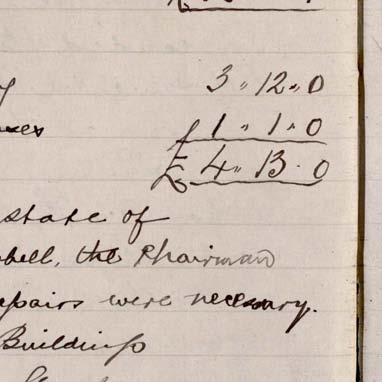 3 " 12 " 0
1 " 1 " 0
£ 4 " 13 . 0
state of
the Chairman
repairs were necessary.
Buildings